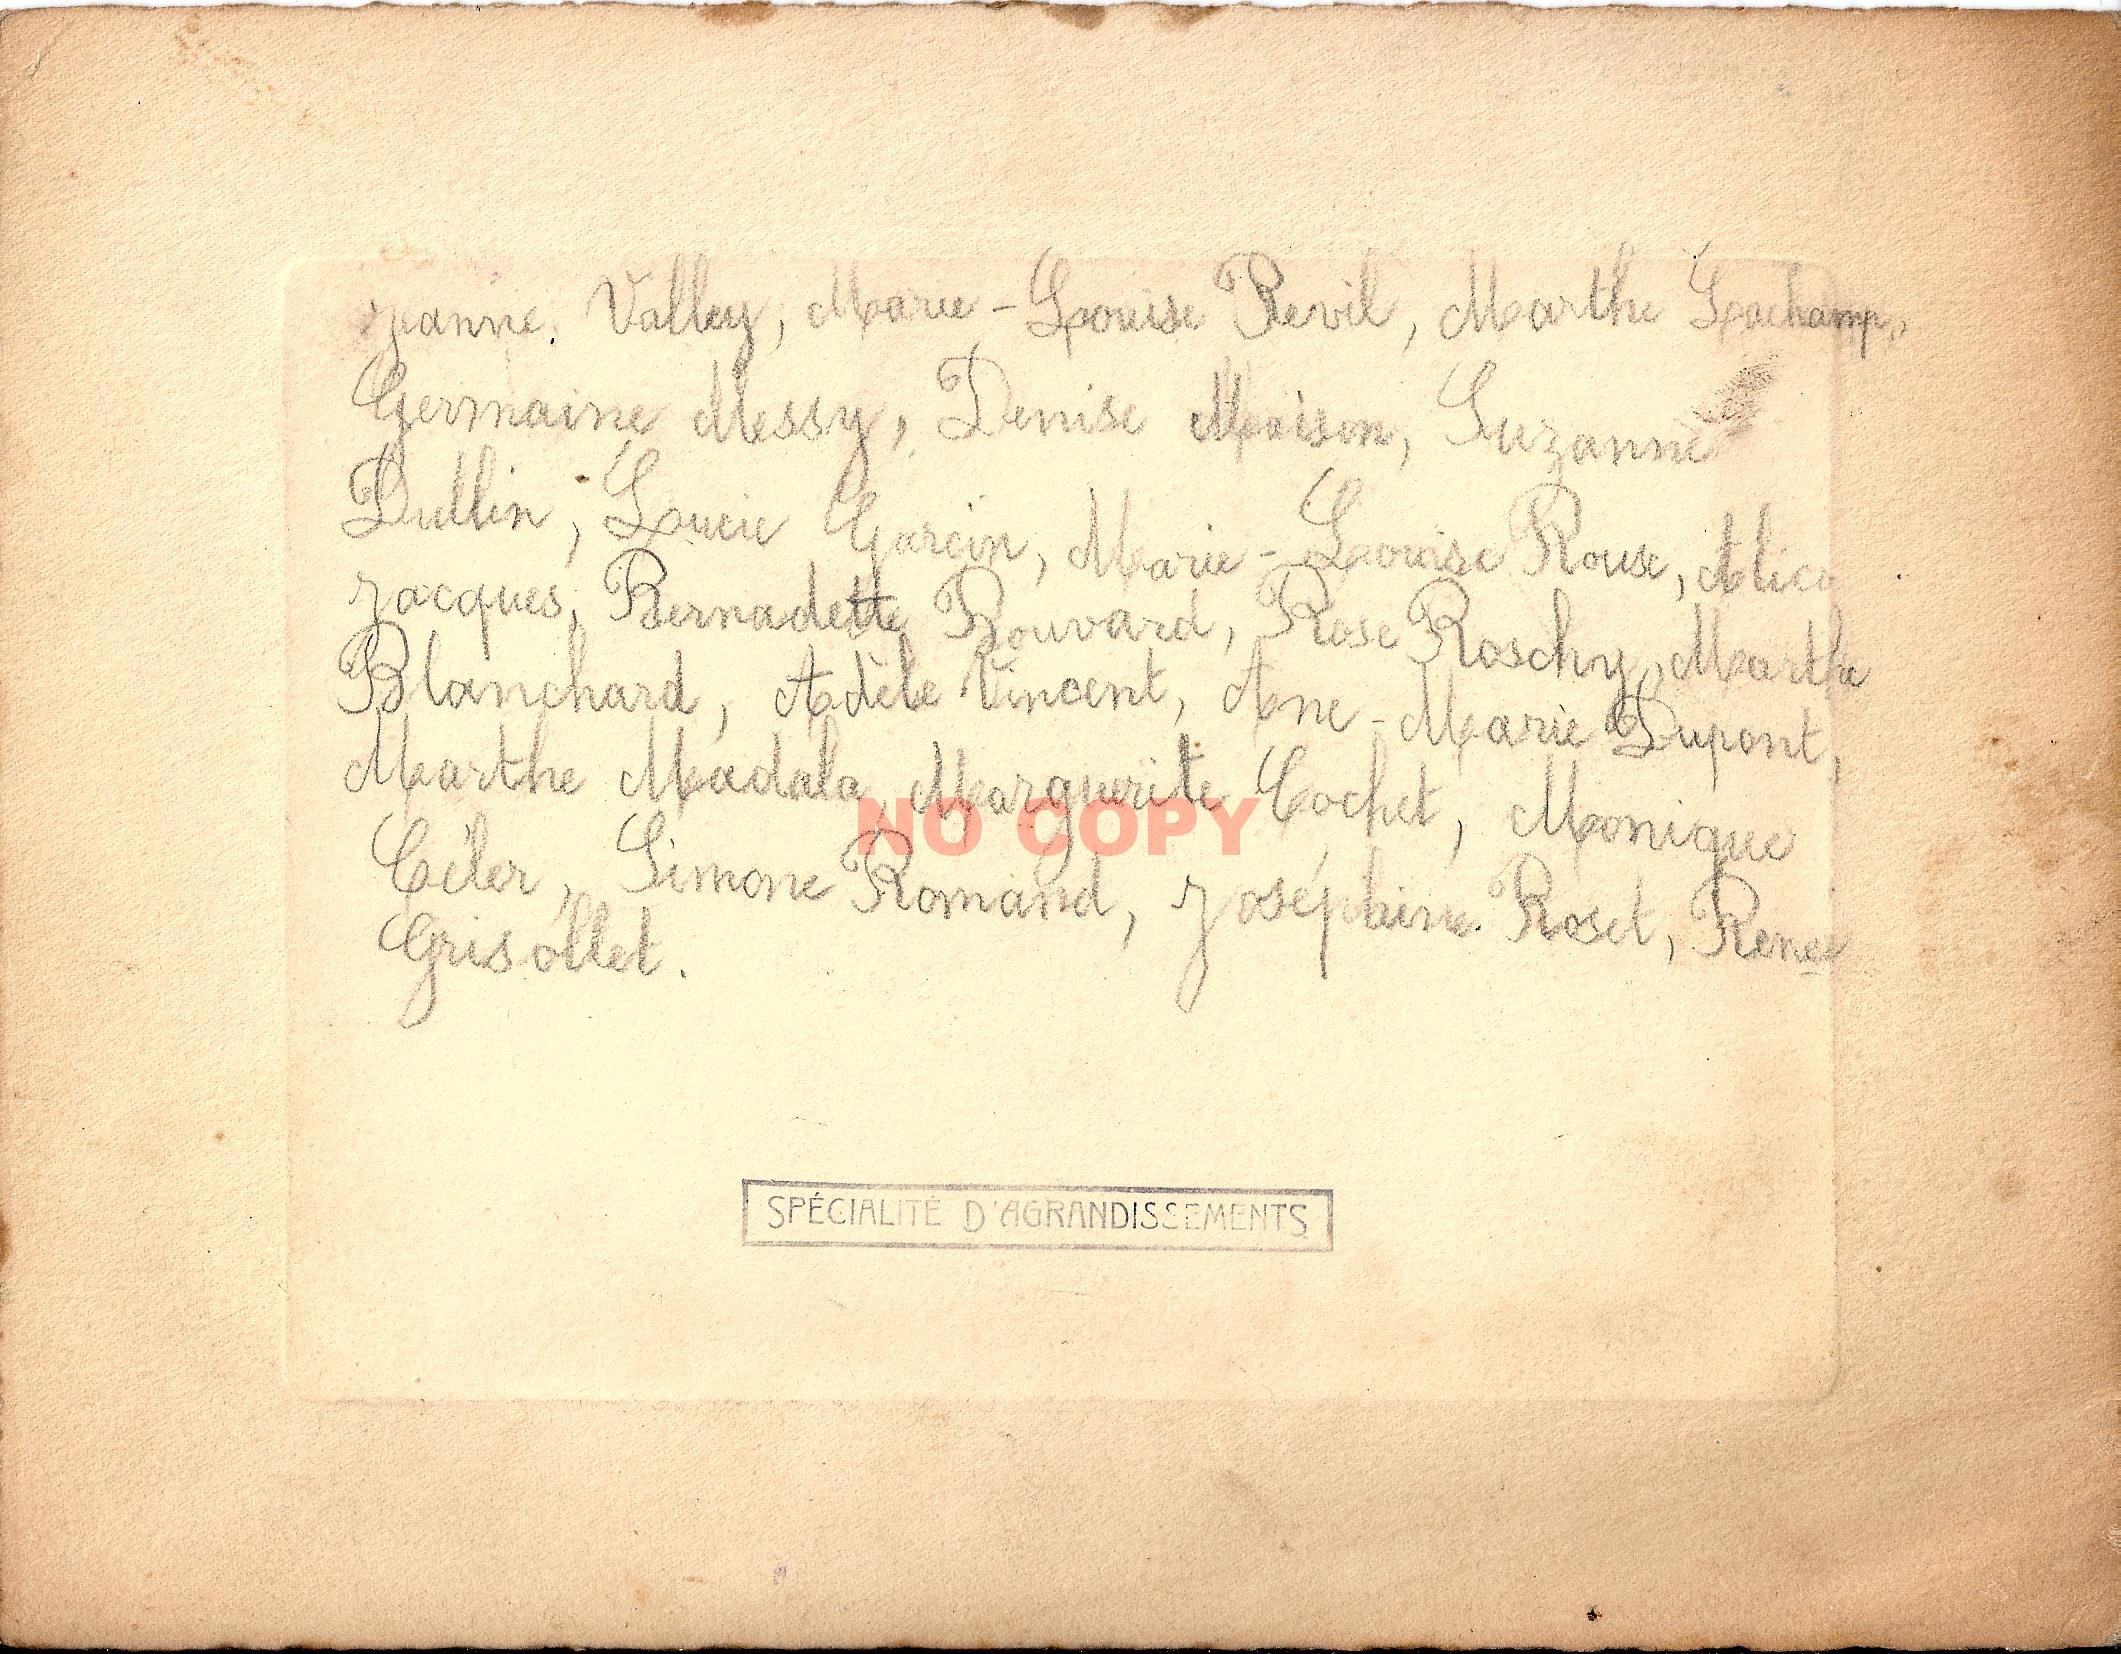 Jeanne. Valley, Marie-Louise Revil, Marthe Lachamp,
Germaine Messy, Denise Maison, Suzanne
Dullin, Lucie Garcin, Marie-Louise Rouse, Alice
Jacques, Bernadette Bouvard, Rose Roschy, Marthe
Blanchard, Adèle Vincent, Ane-Marie Dupont,
Marthe Madala, Marguerite Cochet, Monique
Céler, Simone Romand, Joséphine Roset, Renée
Grisollet.
NO COPY
SPÉCIALITÉ D'AGRANDISSEMENTS